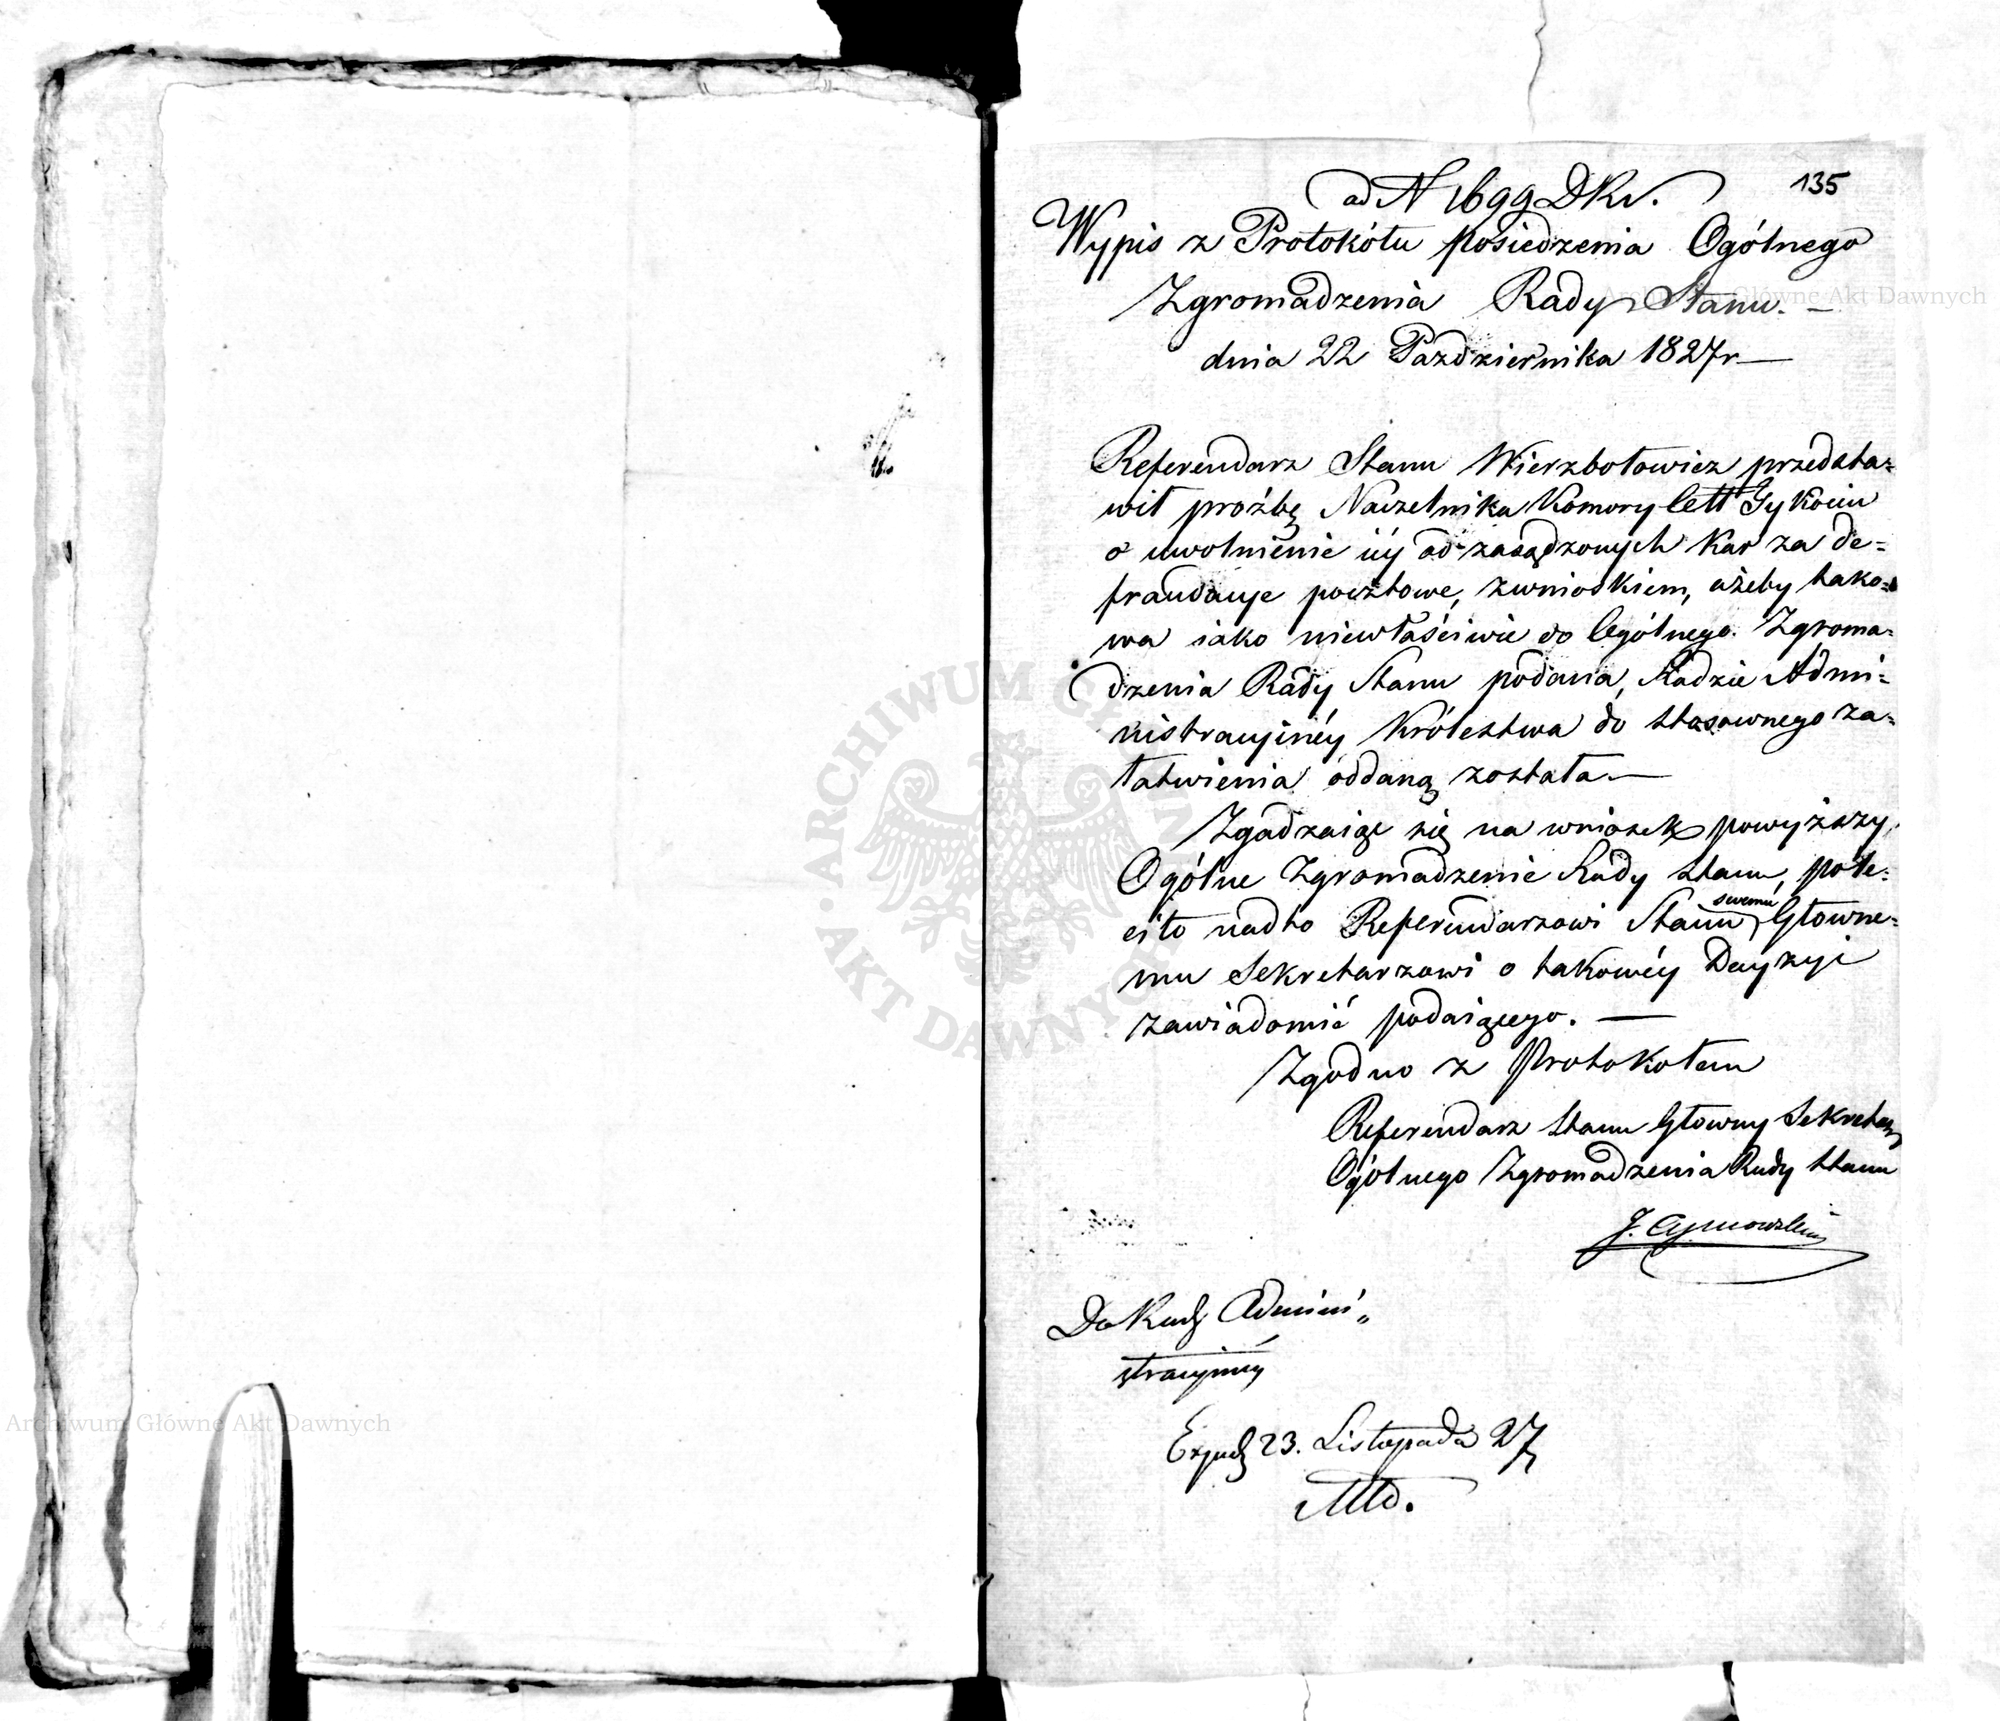 135
ad N 1699 DKr.
Wypis z Protokółu posiedzenia Ogólnego
Zgromadzenia Rady Stanu. —
dnia 22 Października 1827 r —
Referendarz Stanu Wierzbołowicz przedsta=
wił prożbę Naczelnika Komory Cell Tykocin
o uwolnienie iéy od zasądzonych Kar za de=
fraudacye pocztowe, z wnioskiem, ażeby tako=
wa iako niewłaściwie do Ogólnego Zgroma=
dzenia Rady Stanu podana, Radzie Admi=
nistracyinéy Królestwa do stosownego za=
łatwienia oddaną została. —
Zgadzaiąc się na wniosek powyższy,
Ogólne Zgromadzenie Rady Stanu, pole=
ciło nadto Referendarzowi Stanu swemu Głowne=
mu Sekretarzowi o takowéy Decyzyi
zawiadomić podaiącego. —
Zgodno z Protokołem
Referendarz Stanu Głowny Sekretarz
Ogólnego Zgromadzenia Rady Stanu
Do Rady Admini„
stracyinéy
23. Listopada 27
Archiwum Główne Akt Dawnych
ARCHIWUM GŁÓWNE AKT DAWNYCH
Archiwum Główne Akt Dawnych